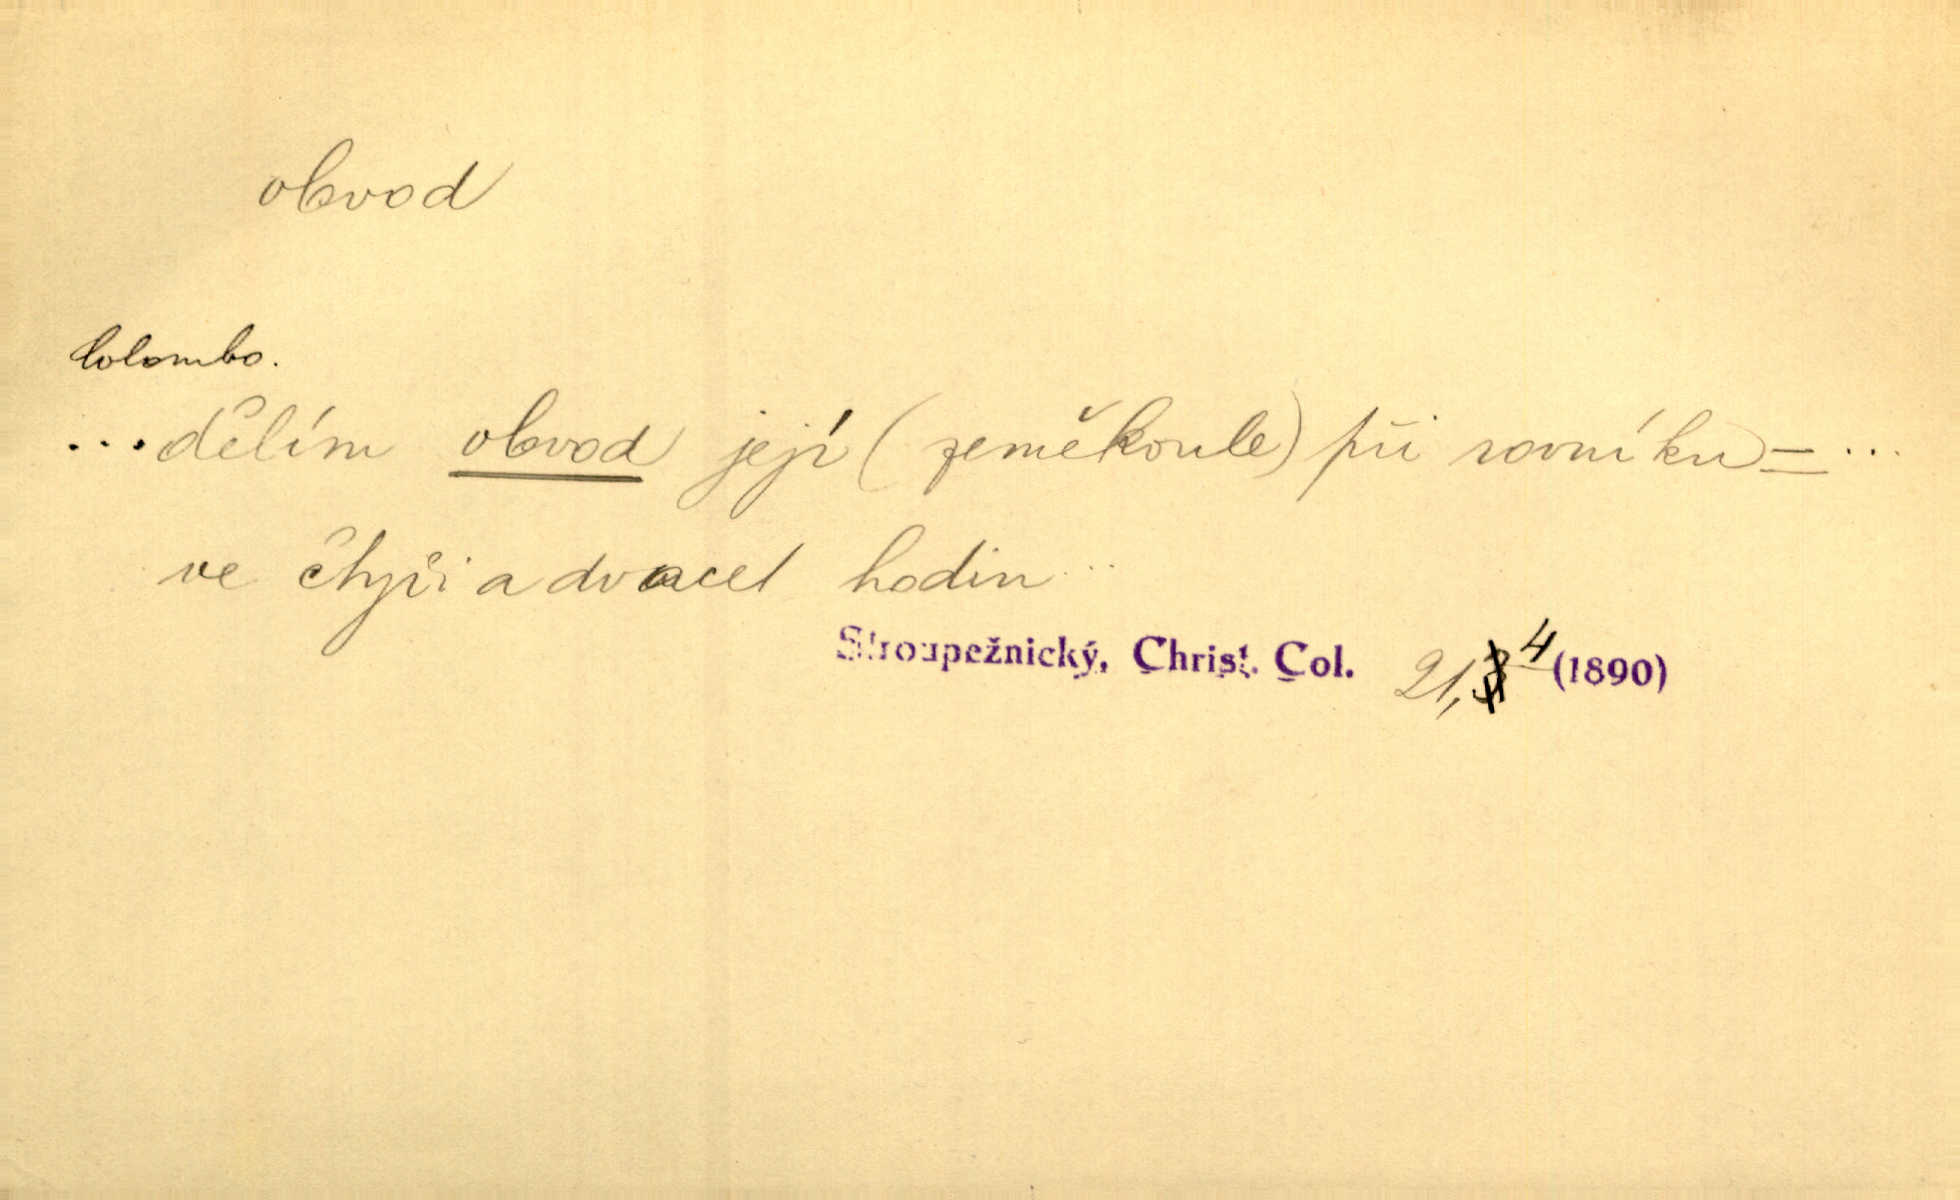 obvod
Colombo.
...dělím obvod její (zeměkoule) při rovníku = ...
ve čtyři a dvacet hodin...
Stroupežnický, Christ. Col. 21, 4 (1890)